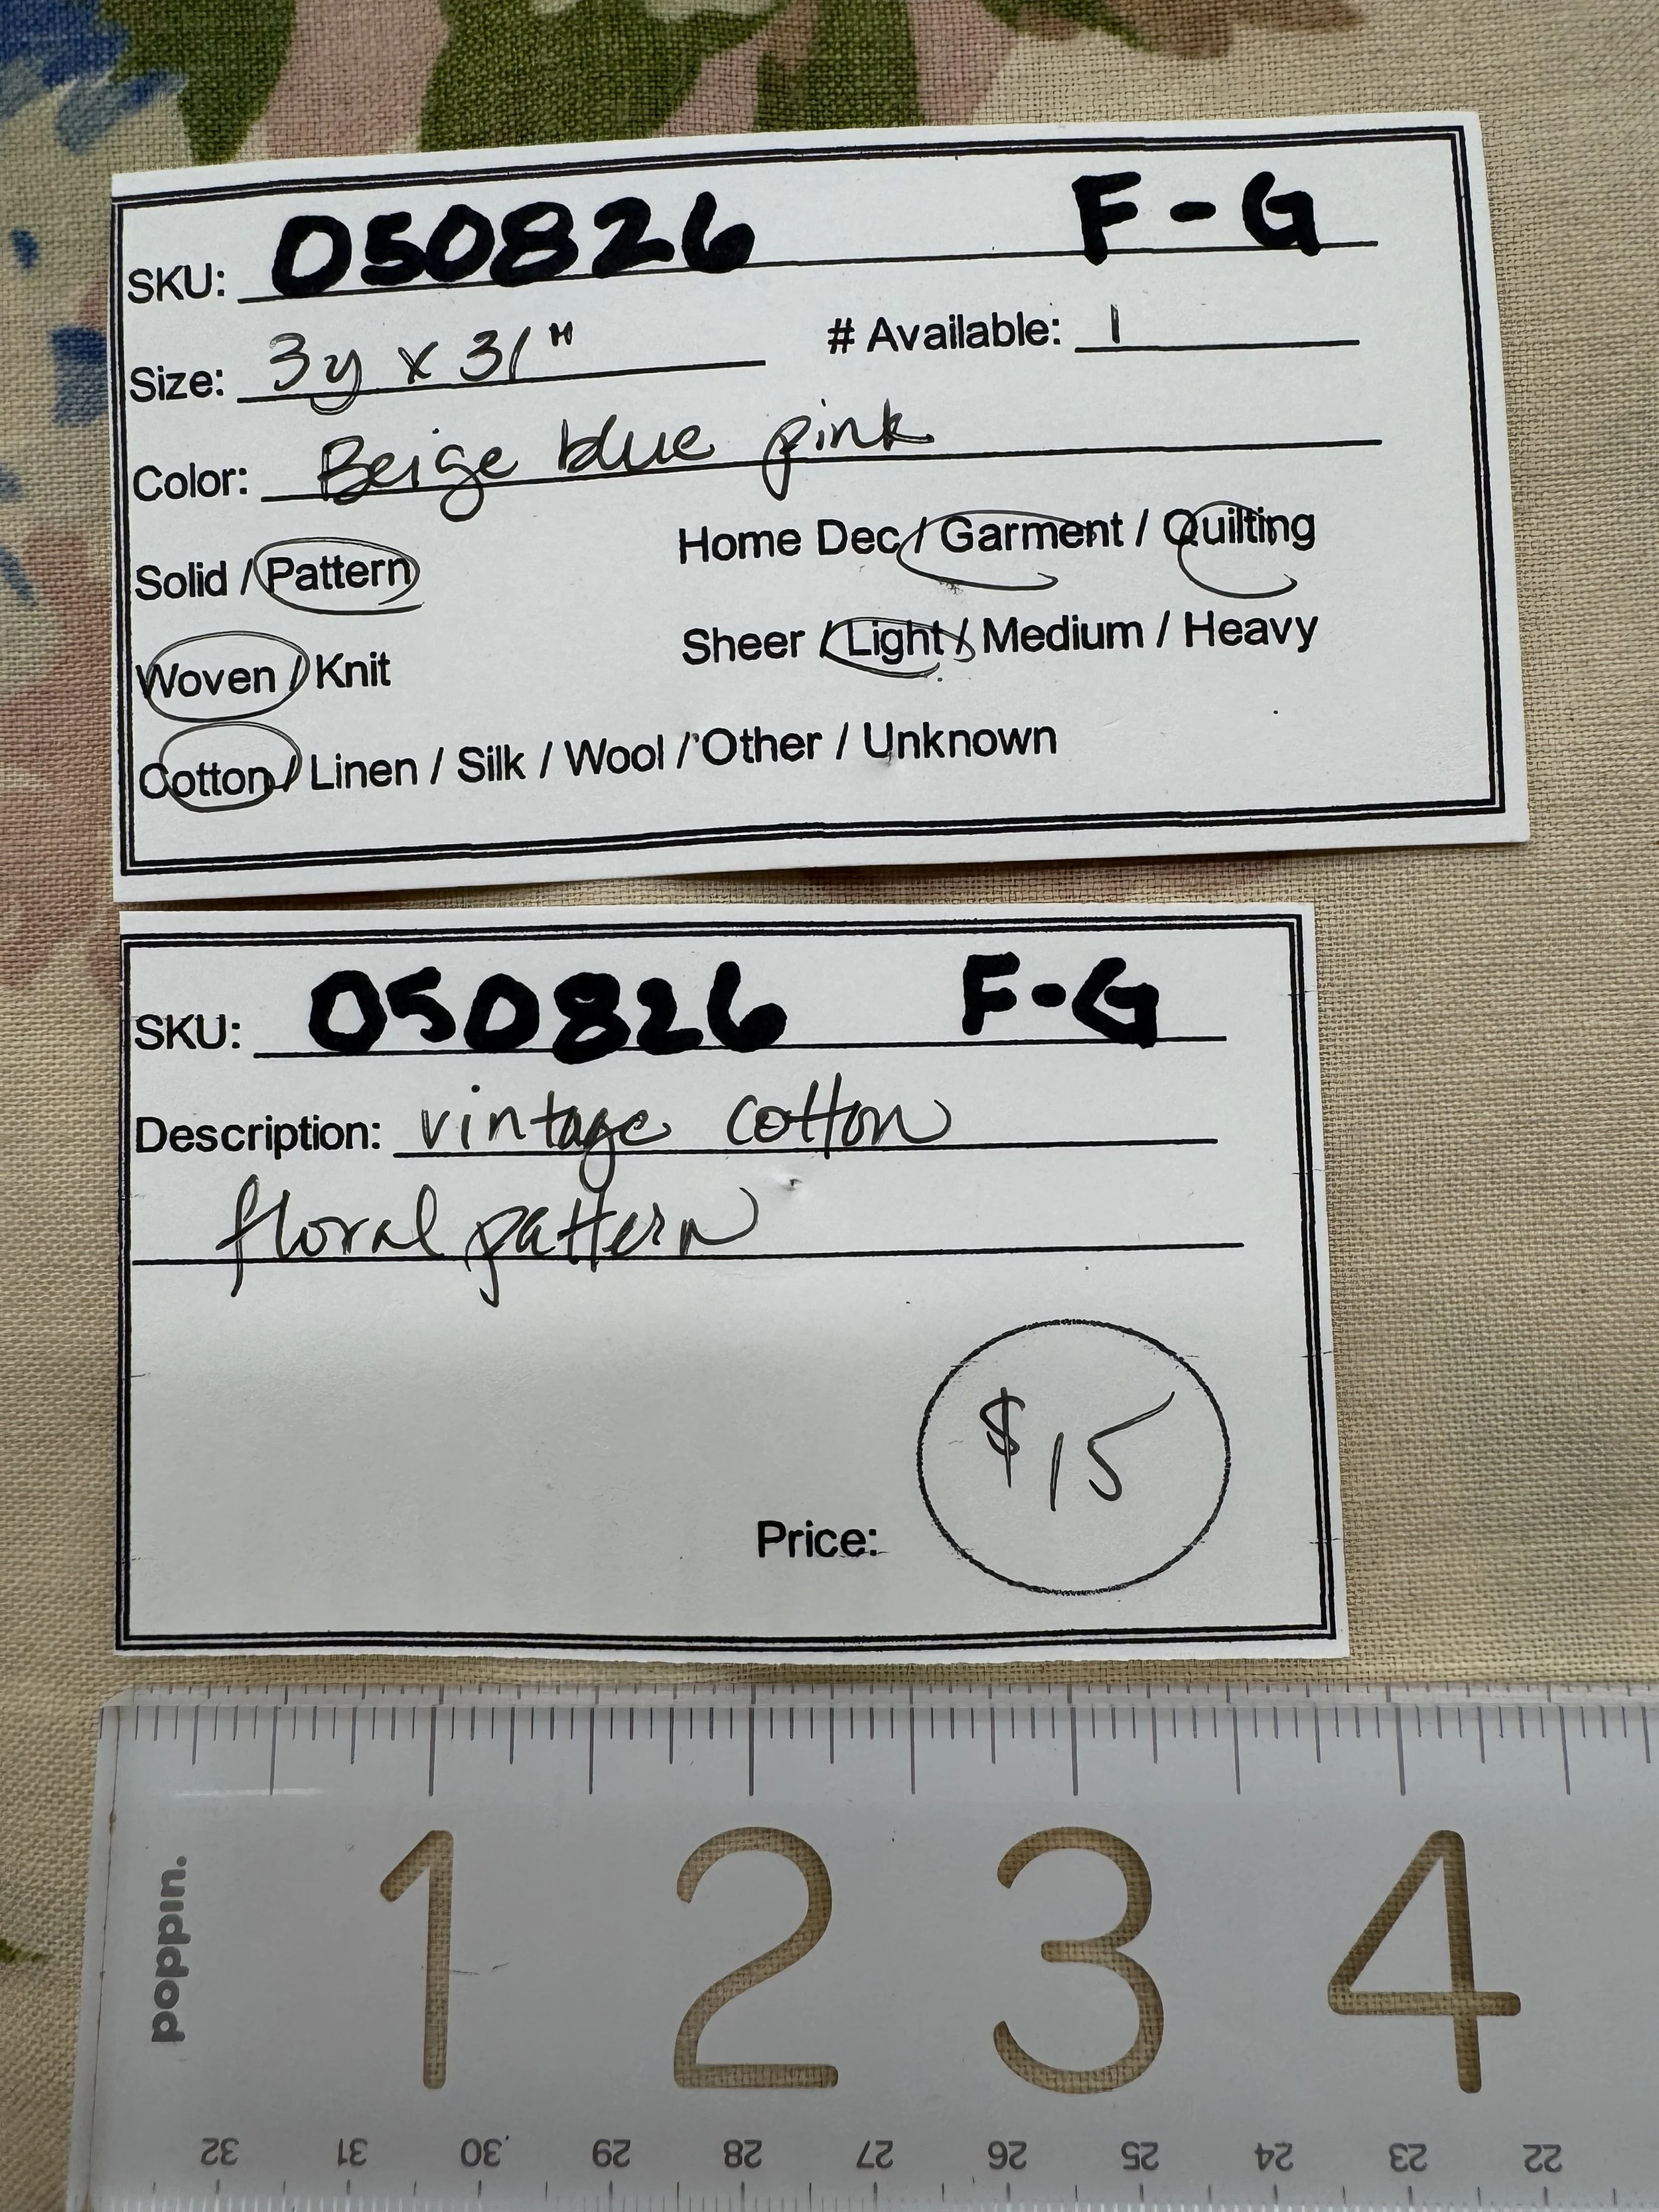 SKU: 050826 F-G
Size: 3y x 31" # Available: 1
Color: Beige blue pink
Solid / Pattern Home Dec / Garment / Quilting
Woven / Knit Sheer / Light / Medium / Heavy
Cotton / Linen / Silk / Wool / Other / Unknown
SKU: 050826 F-G
Description: vintage cotton
floral pattern
$15
Price:
poppin.
1 2 3 4
32 31 30 29 28 27 26 25 24 23 22